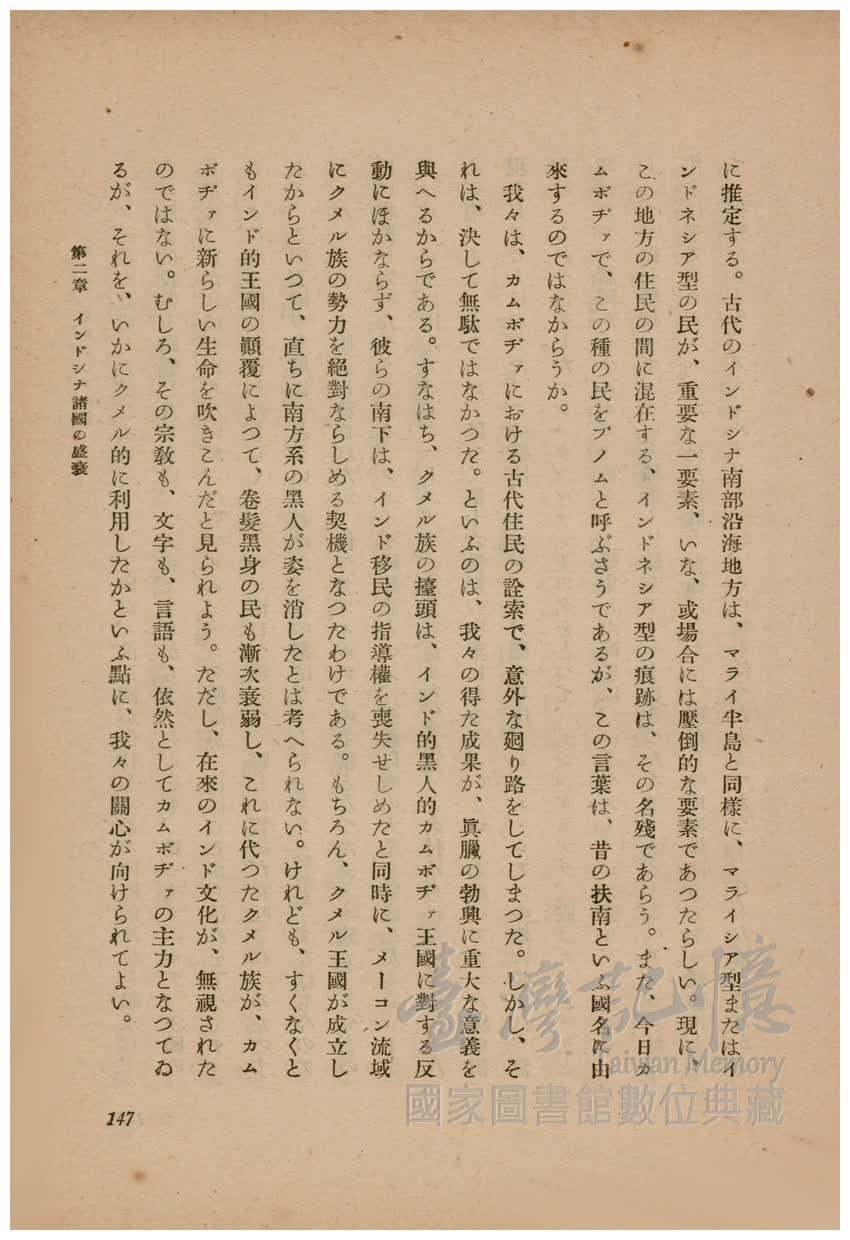 に推定する。古代のインドシナ南部沿海地方は、マライ半島と同樣に、マライシア型またはイ
ンドネシア型の民が、重要な一要素、いな、或場合には壓倒的な要素であつたらしい。現に、
この地方の住民の間に混在する、インドネシア型の痕跡は、その名殘であらう。また、今日カ
ムボヂァで、この種の民をプノムと呼ぶさうであるが、この言葉は、昔の扶南といふ國名に由
來するのではなからうか。
我々は、カムボヂァにおける古代住民の詮索で、意外な廻り路をしてしまつた。しかし、そ
れは、決して無駄ではなかつた。といふのは、我々の得た成果が、眞臘の勃興に重大な意義を
與へるからである。すなはち、クメル族の擡頭は、インド的黑人的カムボヂァ王國に對する反
動にほかならず、彼らの南下は、インド移民の指導權を喪失せしめたと同時に、メーコン流域
にクメル族の勢力を絕對ならしめる契機となつたわけである。もちろん、クメル王國が成立し
たからといつて、直ちに南方系の黑人が姿を消したとは考へられない。けれども、すくなくと
もインド的王國の顚覆によつて、卷髮黑身の民も漸次衰弱し、これに代つたクメル族が、カム
ボヂァに新らしい生命を吹きこんだと見られよう。ただし、在來のインド文化が、無視された
のではない。むしろ、その宗敎も、文字も、言語も、依然としてカムボヂァの主力となつてゐ
るが、それを、いかにクメル的に利用したかといふ點に、我々の關心が向けられてよい。
第二章 インドシナ諸國の盛衰
147
臺灣記憶
Taiwan Memory
國家圖書館數位典藏